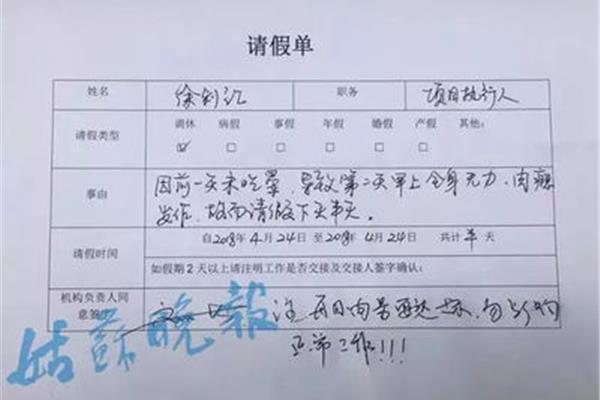 请假单
姓名 徐 职务 项目执行人
请假类型 调休 病假 事假 年假 婚假 产假 其他:
☑ □ □ □ □ □
事由 因前一天未吃荤,导致第二天早上全身无力,肉瘾
发作,故而请假下午半天。
请假时间 自2018年4月24日 至2018年4月24日 共计半天
如假期2天以上请注明工作是否交接及交接人签字确认:
机构负责人同
意签 注 日内 勿影响
正常工作!!!
姑苏晚报